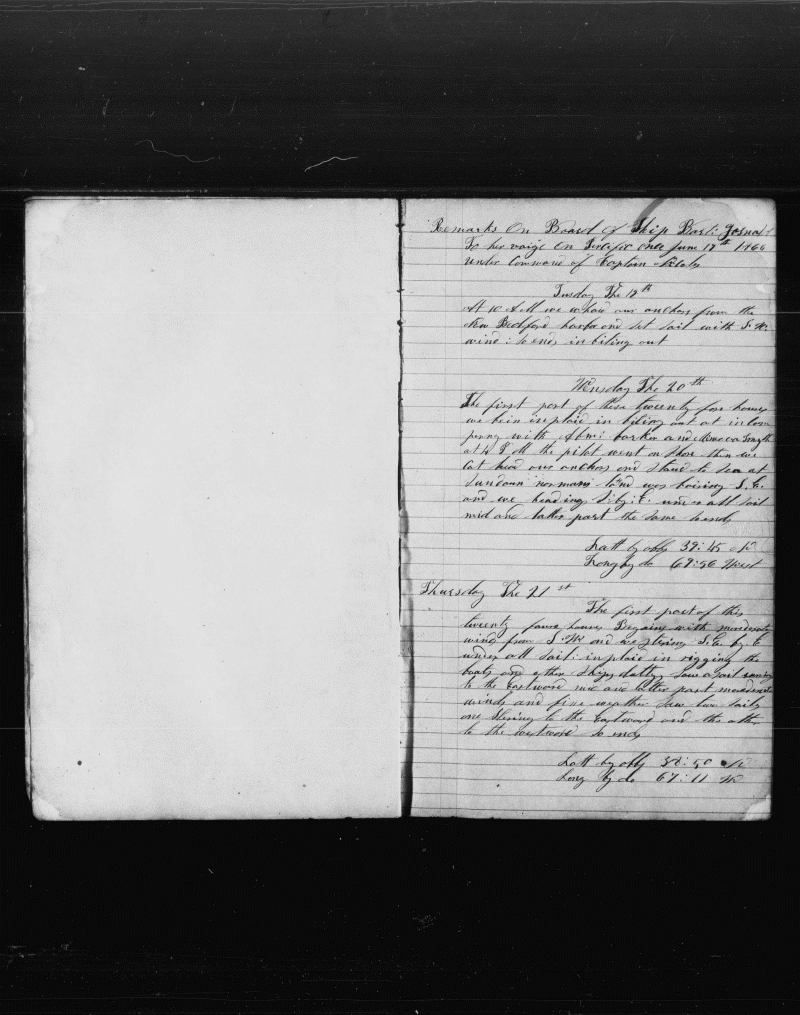 Remarks On Board of Ship Bark
To her voige On Pasific June 19th 1866
under Command of Captain
Tusday The 19th
At 10 A M we whaid our anchors from the
New Bedford harbe and set sail with S. W.
wind: So ends in biting out
Wensday The 20th
The first part of these twenty four houres
we bein inplaid in biting out at in com
penny with barker and
at 4 P M the pilot went on Shore then we
Cat head our anchors and stand to sea at
Sundoun nomans land was baring S. E.
and we heading S: by: E. under all sail
mid and latter part the same So ends
Latt by obs 39: 45 N
Long by do 69: 56 West
Thursday The 21st
The first part of this
twenty foure houres Begains with moderate
wind from S. W. and we stering S. E. by E
under all sail: inplaid in rigging the
boats and other Ships dutty. Saw a sail
to the Eastward mid and latter part moderate
winds and fine weather Saw two sails
one Stering to the Eastward and the other
to the westward So ends
Latt by obs 38: 50 N
Long by do 67: 11 W